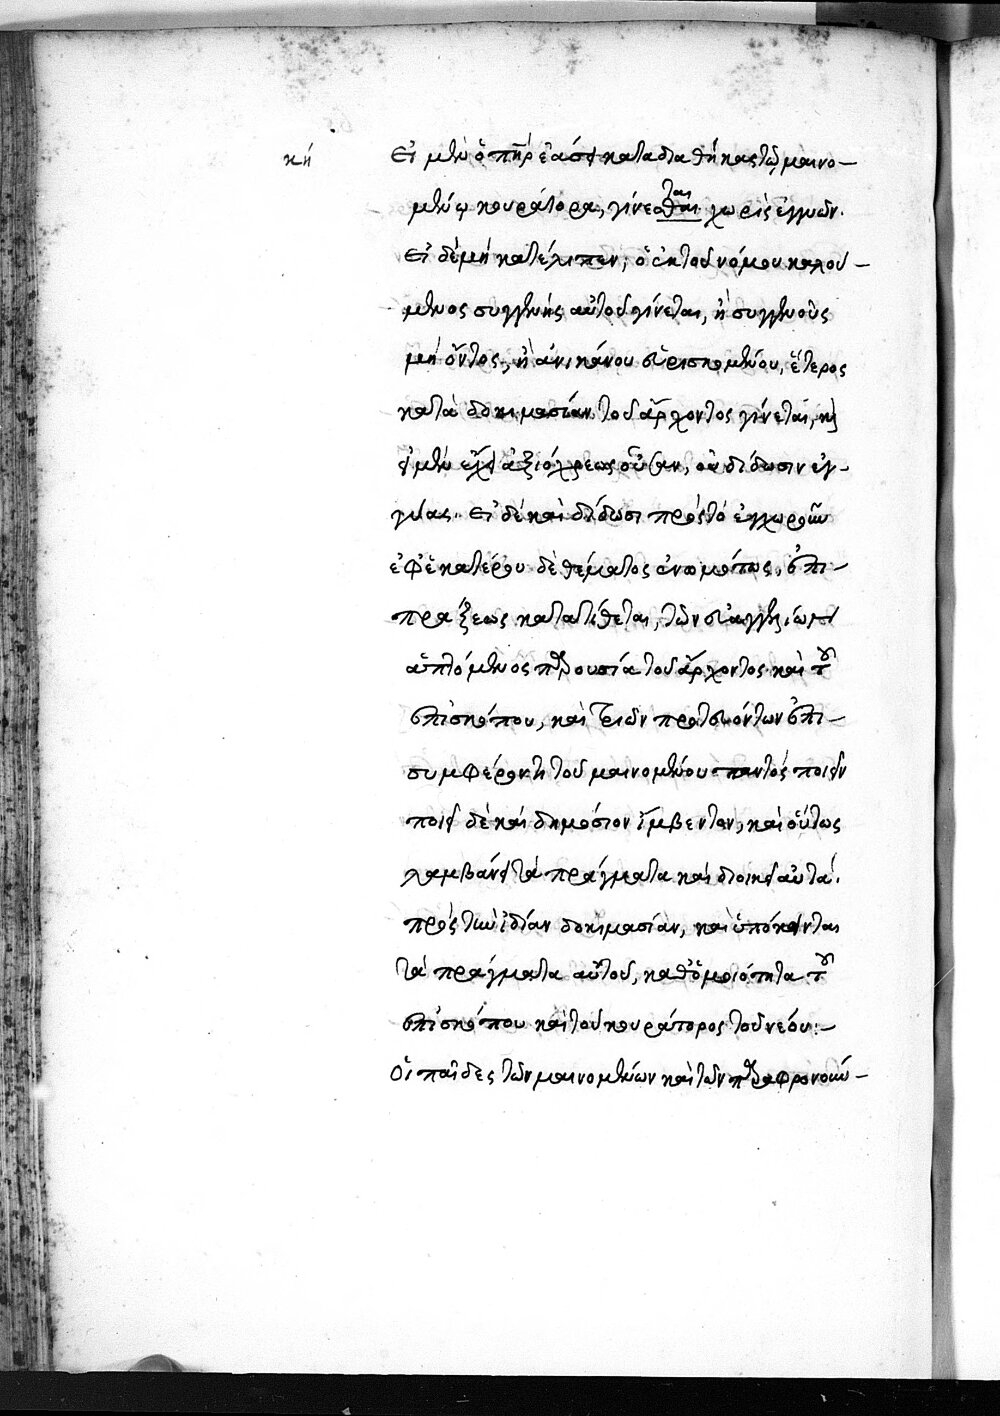 κή Εἰ μὲν ὁ πηρ ἐάσει κατὰ διαθήκας τῷ μαινο-
μένῳ κουράτορα, γίνεσθαι ται χωρὶς ἐγγυῶν.
Εἰ δὲ μὴ κατέλιπεν, ὁ ἐκ τοῦ νόμου καλού-
μενος συγγενὴς αὐτοῦ γίνεται, ἢ συγγενοῦς
μὴ ὄντος, ἢ ἀνικάνου εὑρισκομένου, ἕτερος
κατὰ δοκιμασίαν τοῦ ἄρχοντος γίνεται, καὶ
εἰ μὲν ἔχει ἀξιόχρεως οὐσίαν, οὐ δίδωσιν ἐγ-
γύας. Εἰ δὲ καὶ δίδωσι πρὸς τὸ ἐγχωροῦν
ἐφ' ἑκατέρου δὲ θέματος ἐνωμότως, ἐπι-
πράξεως κατατίθεται, τῶν εὐαγγελίων
ἁπτόμενος παρουσίᾳ τοῦ ἄρχοντος καὶ τοῦ
ἐπισκόπου, καὶ τριῶν πρωτευόντων ἐπι-
συμφέροντι τοῦ μαινομένου παντὸς ποιεῖν
ποιεῖ δὲ καὶ δημόσιον ἴμβεντον, καὶ οὕτως
λαμβάνει τὰ πράγματα καὶ διοικεῖ αὐτὰ.
πρὸς τὴν ἰδίαν δοκιμασίαν, καὶ ὑπόκεινται
τὰ πράγματα αὐτοῦ, καθ' ὁμοιότητα τοῦ
ἐπισκόπου καὶ τοῦ κουράτορος τοῦ νέου:-
Οἱ παῖδες τῶν μαινομένων καὶ τῶν παραφρονούν-